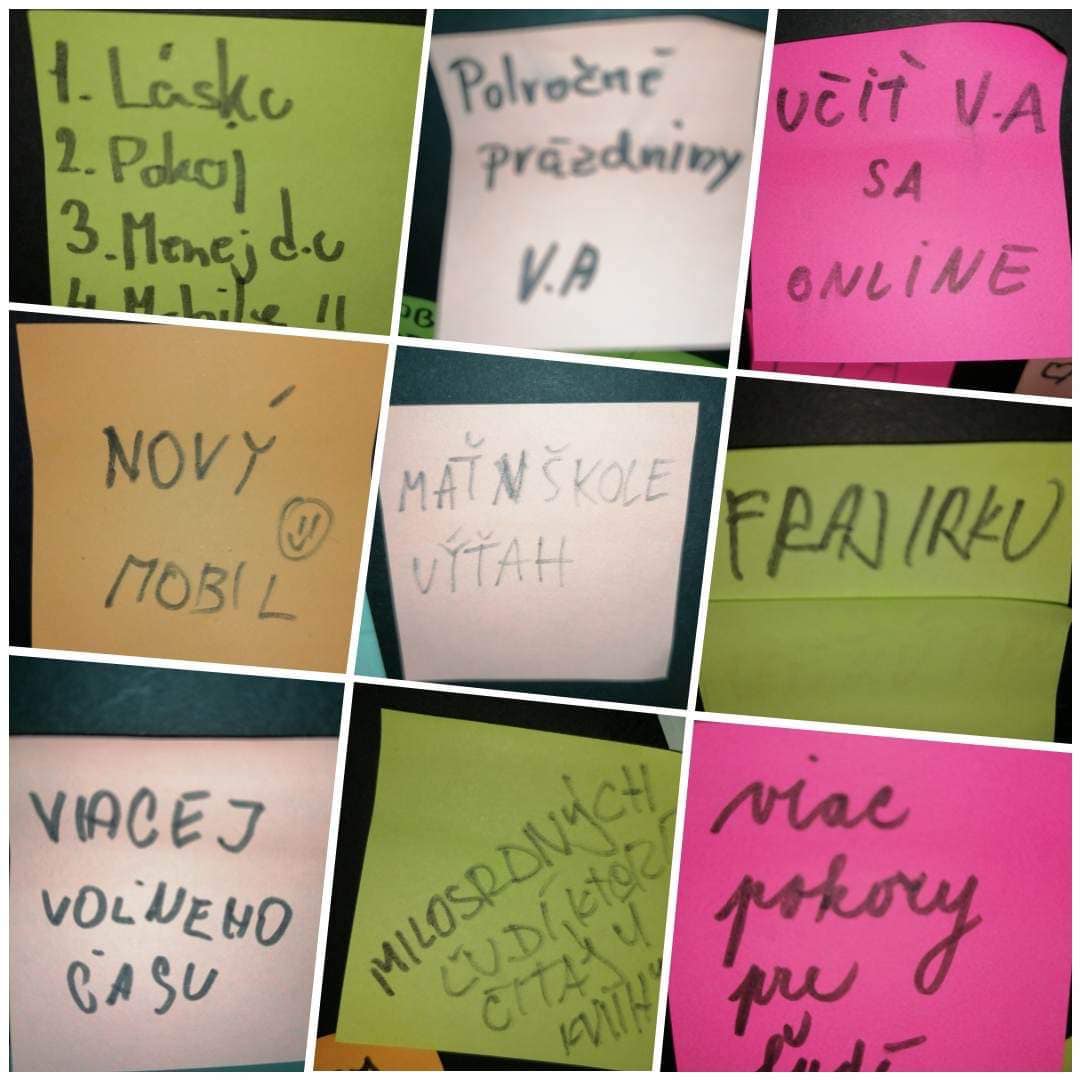 1. Lásku
2. Pokoj
3. Menej d.u
4. Mobile !!
Polročné
prázdniny
V.A
UČIŤ V.A
SA
ONLINE
NOVÝ
MOBIL
MAŤ V ŠKOLE
VÝŤAH
FRAJIRKU
VIACEJ
VOLNEHO
ČASU
MILOSRDNÝCH
ĽUDÍ, KTORÍ
ČÍTAJÚ
viac
pokory
pre
ľudí